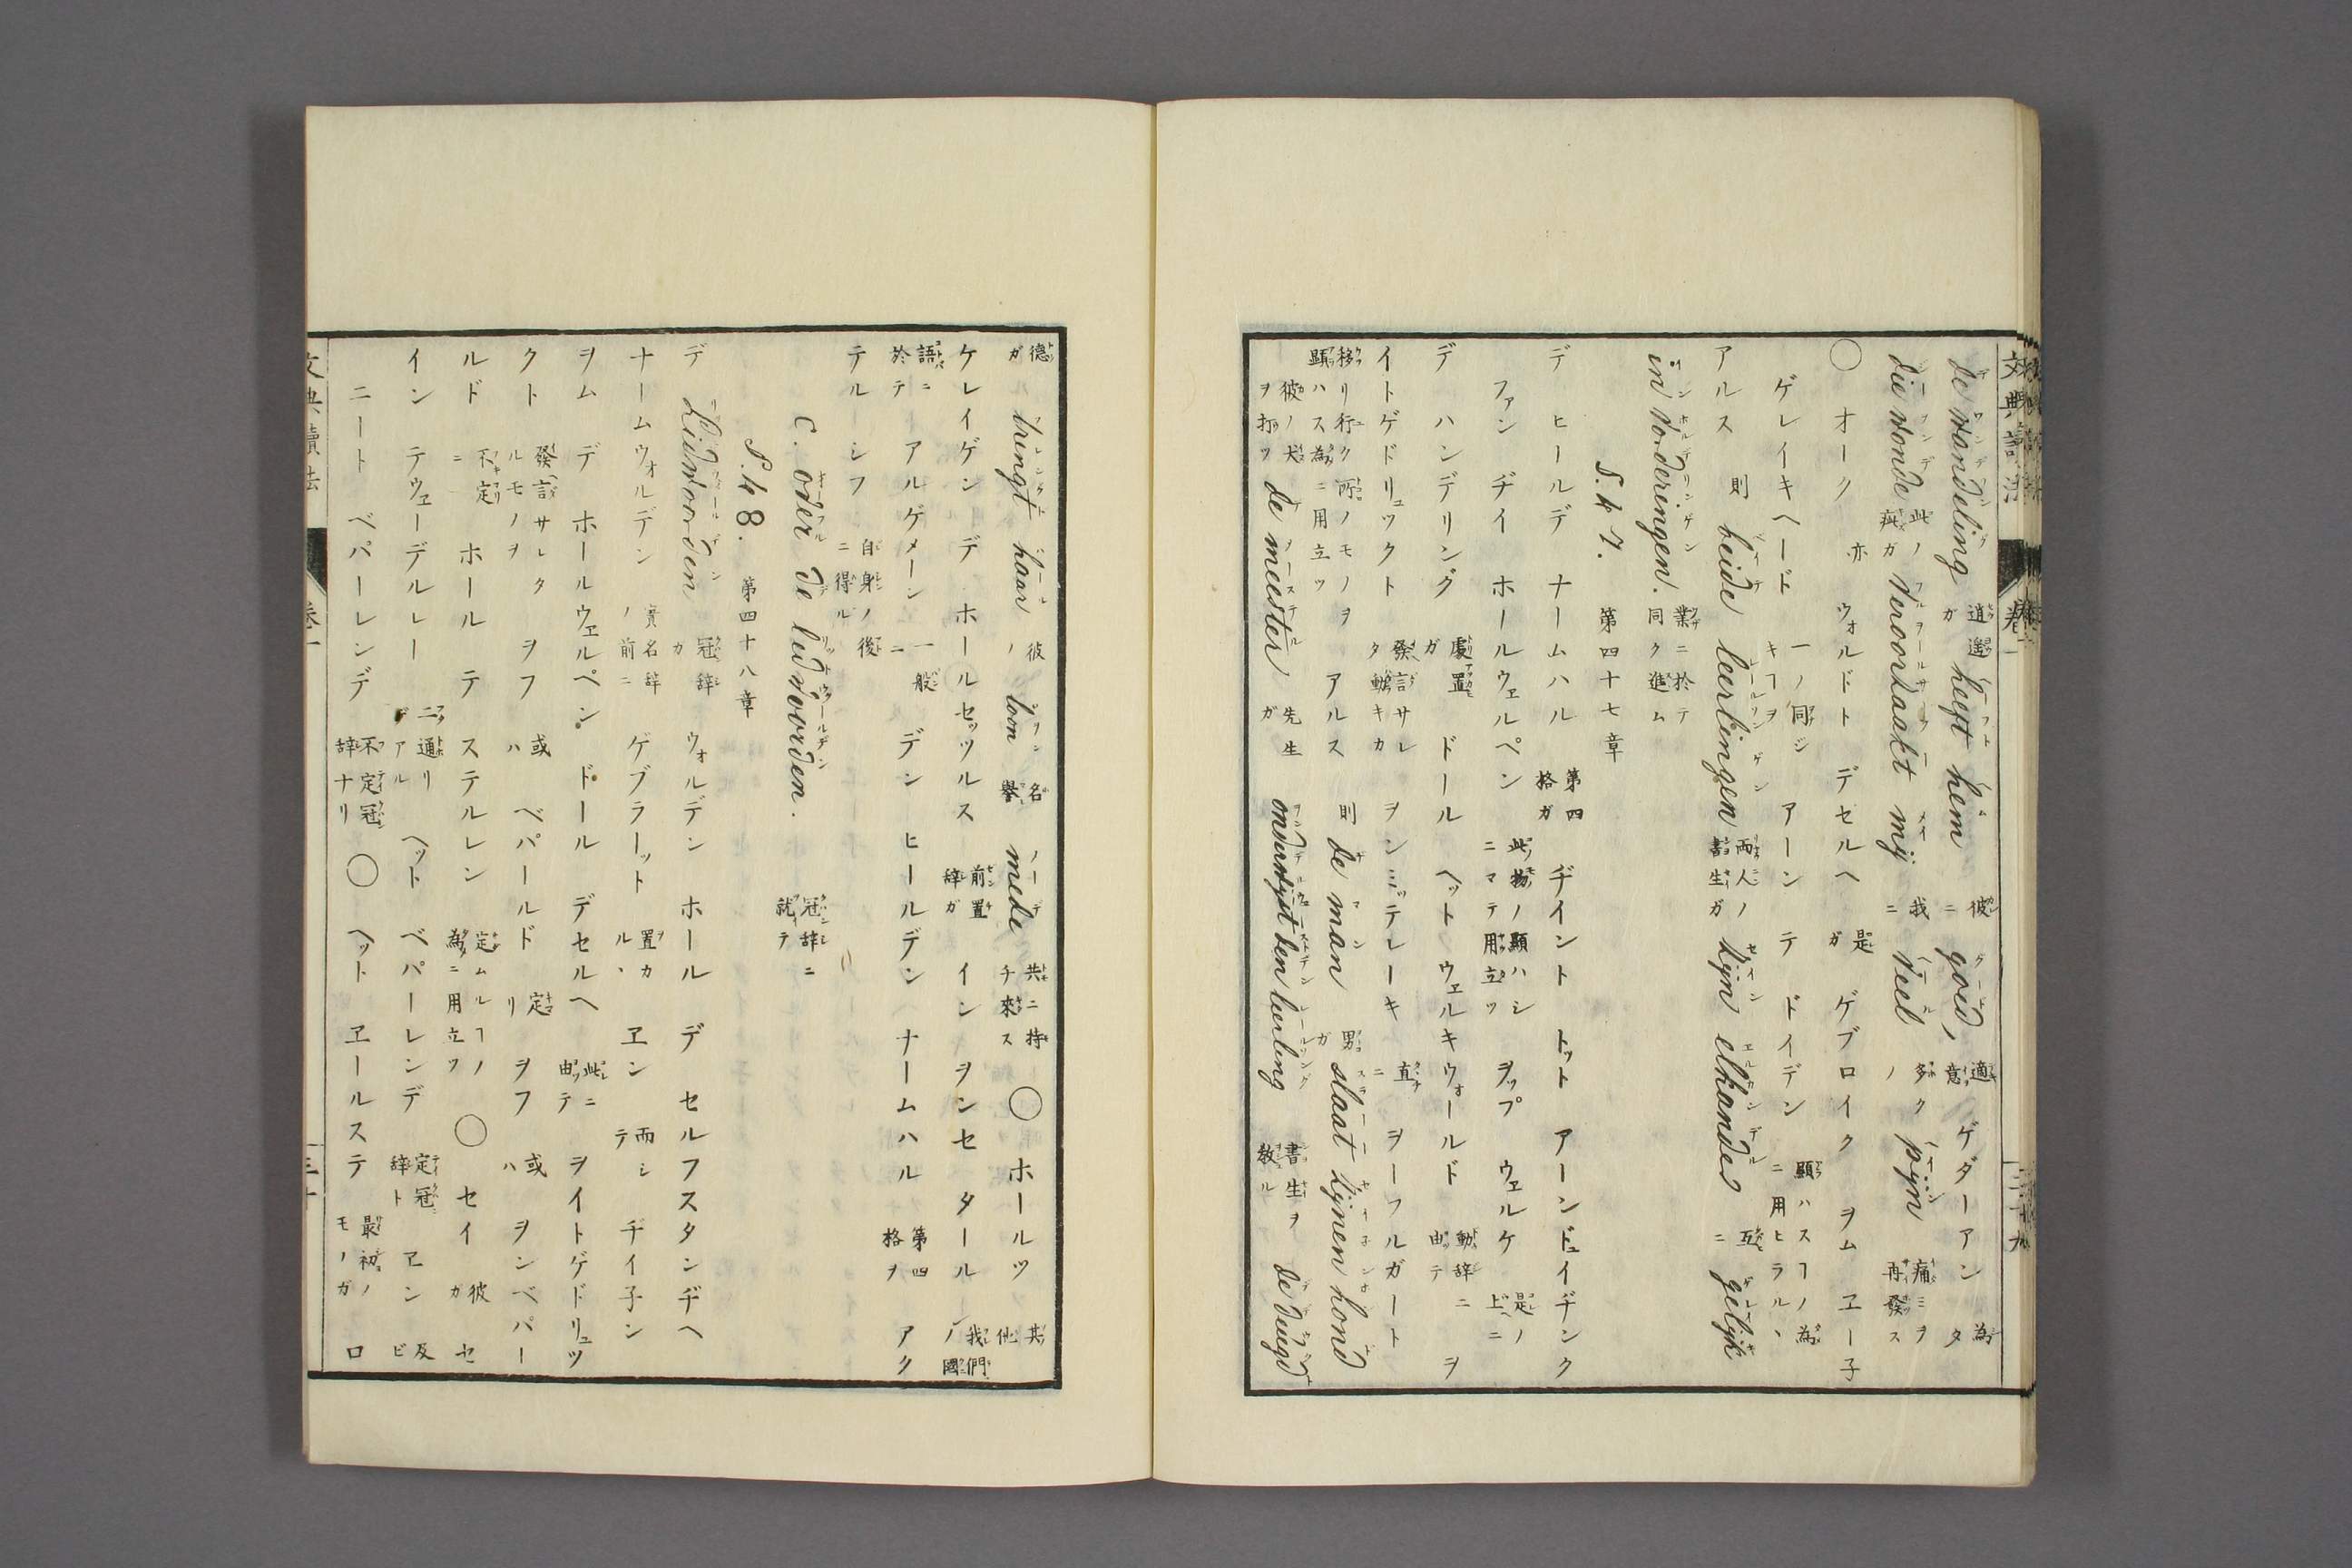 de wandeling 逍遥ガ heeft hem 彼ニ goed, 適意 ゲダーアン 為タ
die wonde 此ノ疵ガ veroorzaakt mij 我ニ veel 多クノ pijn 痛ミヲ再發ス
〇 オーク 亦 ウォルドト デセルヘ 是ガ ゲブロイク ヲム エー子
ゲレイキヘート 一ノ同シキヿヲ アーン テ ドイデン 顯ハスヿノ為ニ用ヒラルヽ
アルス 則 beide leerlingen 両人ノ書生ガ zijn elkander 互ニ gelijk
in vorderingen. 業ニ於テ同ク進ム
S. 47. 第四十七章
デ ヒールデ ナームハル 第四格ガ ヂイント トット アーンドュイヂンク
ファン ヂイ ホールウェルペン 此物ノ顯ハシニマテ用立ツ ヲップ ウェルケ 是ノ上ニ
デ ハンデリング 處置ガ ドール ヘット ウェルキウォールド 動辞ニ由テ ヲ
イトゲドリュックト 發言サレタ動キカ ヲンミッテレーキ 直ニ ヲーフルガート
移リ行ク所ノモノヲ顯ハス為ニ用立ツ アルス 則 de man 男ガ slaat zijnen hond
彼ノ犬ヲ打ツ de meester 先生ガ onderwijst den leerling 書生ヲ教ル de deugd
文典讀法 卷一 三十九
徳ガ brengt haar 彼ノ loon 名譽 mede 共ニ持チ來ス 〇 ホールツ 其他
ケレイゲン デ ホールセッツルス 前置辞ガ イン ヲンセ タール 我們ノ國
語ニ於テ アルゲメーン 一般ニ デン ヒールデン ナームハル 第四格ヲ アク
テルーシフ 自身ノ後ニ得ル
C. over de lidwoorden. 冠辞ニ就テ
S. 48. 第四十八章
デ Lidwoorden 冠辞カ ウォルデン ホール デ セルフスタンヂヘ
ナームウォルデン 實名辞ノ前ニ ゲブラーット 置カルヽ エン 而シテ ヂイ子ン
ヲム デ ホールウェルペン ドール デセルヘ 此ニ由テ ヲイトゲドリュッ
クト 發言サレタルモノヲ ヲフ 或ハ ベパールド 定リ ヲフ 或ハ ヲンベパー
ルド 不定ニ ホール テ ステルレン 定ムルヿノ為ニ用立ツ 〇 セイ 彼ガ セ
イン テウェーデルレー 二通リデアル ヘット ベパーレンデ 定冠辞ト エン 及ビ
ニート ベパーレンデ 不定冠辞ナリ 〇 ヘット エールステ 最初ノモノガ ロ
文典讀法 卷一